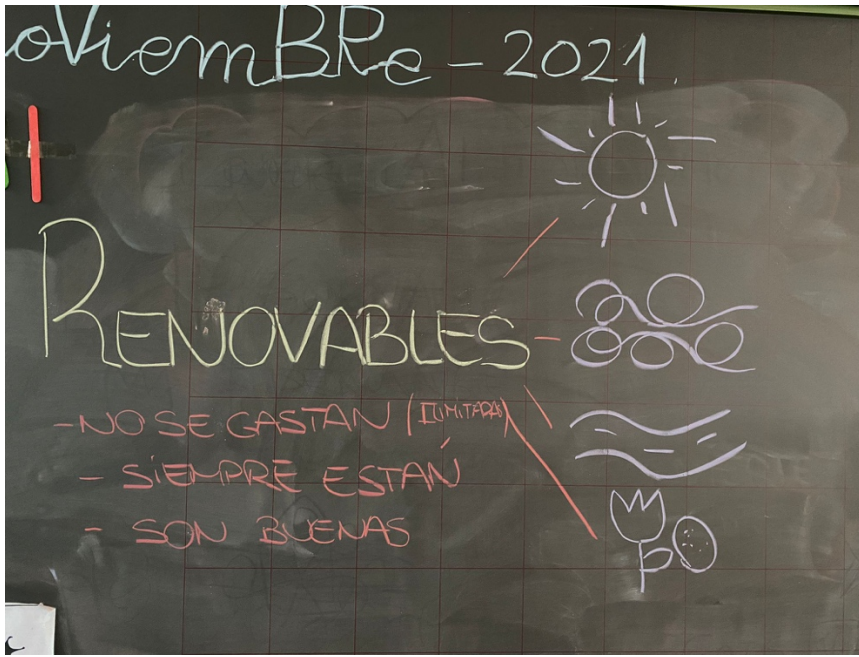 oViemBRe - 2021.
RENOVABLES -
- NO SE GASTAN (ILIMITADAS)
- SIEMPRE ESTÁN
- SON BUENAS